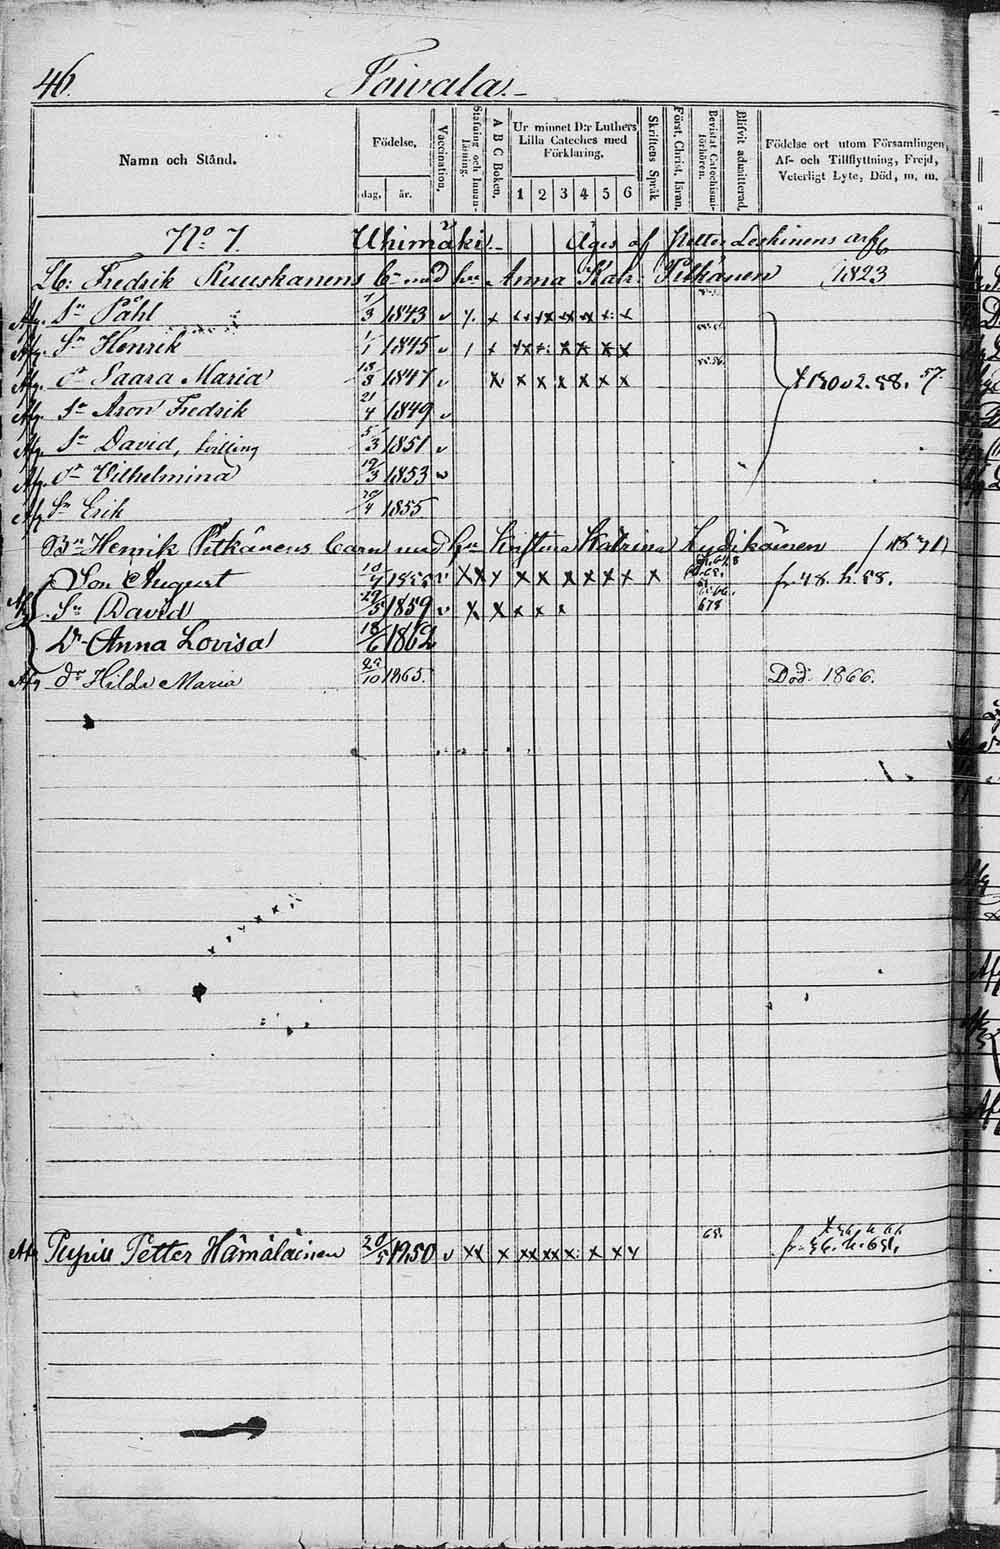 46. Toivala
Namn och Stånd.
Födelse,
dag, år.
Vaccination.
Stafning och Innan-läsning.
A B C Boken.
Ur minnet D:r Luthers Lilla Cateches med Förklaring.
1 2 3 4 5 6
Skriftens Språk
Först. Christ. lsran.
Bevistat Catechismi-förhören.
Blifvit admitterad.
Födelse ort utom Församlingen, Af- och Tillflyttning, Frejd, Veterligt Lyte, Död, m. m.
No 7. Uhimäki Äges af Petter Leskinens arf
Lb: Fredrik Ruuskanens bn med hu Anna Katr: Pitkänen /1823
Afg. Sn Påhl 1/3 1843 v x x x x x x x x x
Afg. Sn Henrik 1/1 1845 v x x x x x x x
Afg. dr Saara Maria 13/3 1847 v x x x x x x x 57.
Afg. Sn Aron Fredrik 21/4 1849 v
Afg. Sn David, tvilling 5/3 1851 v
Afg. dr Vilhelmina 19/3 1853 v
Afg. Sn Erik 1855
Henrik Pitkänens barn med hu Kristina Katrina
Son August 10/ x x x x x x x x x x fr 48. h. 58.
Sn David 29/5 1859 v x x x x x 678
Dr Anna Lovisa 18/6 1862
Afg dr Hilda Maria 23/10 1865. Död 1866.
Afg Petter Hämäläinen 20/5 1850 v xx x xx xx x: x x x 65.